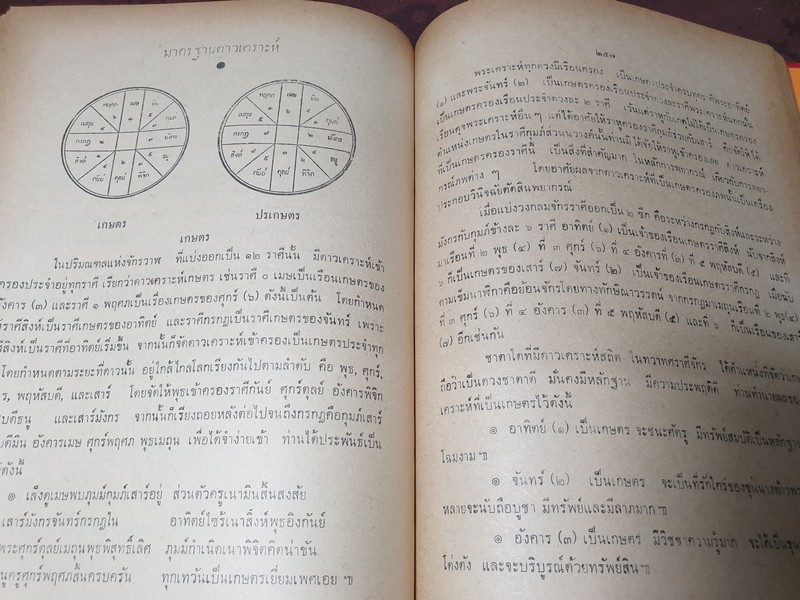 มาตรฐานดาวเคราะห์
พฤษภ เมษ มีน
เมถุน กุมภ์
กรกฎ มังกร
สิงห์ ธนู
กันย์ ตุลย์ พิจิก
พฤษภ เมษ มีน
เมถุน กุมภ์
กรกฎ มังกร
สิงห์ ธนู
กันย์ ตุลย์ พิจิก
เกษตร ปรเกษตร
เกษตร
ในปริมณฑลแห่งจักรวาฬ ที่แบ่งออกเป็น ๑๒ ราศีนั้น มีดาวเคราะห์เข้า
ครองประจำอยู่ทุกราศี เรียกว่าดาวเคราะห์เกษตร เช่นราศี ๐ เมษเป็นเรือนเกษตรของ
อังคาร (๓) และราศี ๑ พฤศภเป็นเรือนเกษตรของศุกร์ (๖) ดังนี้เป็นต้น โดยกำหนด
ราศีสิงห์เป็นราศีเกษตรของอาทิตย์ และราศีกรกฎเป็นราศีเกษตรของจันทร์ เพราะ
สิงห์เป็นราศีที่อาทิตย์เริ่มขึ้น จากนั้นก็จัดดาวเคราะห์เข้าครองเป็นเกษตรประจำทุก
โดยกำหนดตามระยะที่ดาวนั้น อยู่ใกล้ไกลโลกเรียงกันไปตามลำดับ คือ พุธ, ศุกร์,
พฤหัสบดี, และเสาร์ โดยจัดให้พุธเข้าครองราศีกันย์ ศุกร์ตุลย์ อังคารพิจิก
บดีธนู และเสาร์มังกร จากนั้นก็เรียงถอยหลังต่อไปจนถึงกรกฎคือกุมภ์เสาร์
บดีมีน อังคารเมษ ศุกร์พฤศภ พุธเมถุน เพื่อได้จำง่ายเข้า ท่านได้ประพันธ์เป็น
ดังนี้
๏ เล็งดูเมษพบภุมม์กุมภ์เสาร์อยู่ ส่วนตัวครูเนามีนสิ้นสงสัย
เสาร์มังกรจันทร์กรกฎใน อาทิตย์ไซร้เนาสิงห์พุธอิงกันย์
พระศุกร์ตุลย์เมถุนพุธพิสุทธิ์เลิศ ภุมม์กำเนิดเนาพิจิตคิดน่าขัน
ธนูครูศุกร์พฤศภสิ้นครบครัน ทุกเทวันเป็นเกษตรเยี่ยมเพศเอย ๚
๒๕๗
พระเคราะห์ทุกดวงมีเรือนครอง เป็นเกษตรประจำครบทุกราศีพระอาทิตย์
(๑) และพระจันทร์ (๒) เป็นเกษตรครองเรือนประจำดวงละราศีพระเคราะห์นอกนั้น
เป็นเกษตรครองเรือนประจำดวงละ ๒ ราศี เว้นแต่ราหูกับเกตุไม่ได้เป็นเกษตรครอง
เรือนดุจพระเคราะห์อื่นๆ แต่ได้อาศัยให้ราหูครองราศีกุมภ์ร่วมกับเสาร์
ตำแหน่งเกษตรในราศีกุมภ์ส่วนวางคี่นั้นท่านมิได้จัดให้ราหูเข้าครองเลย ดาวเคราะห์
ที่เป็นเกษตรครองราศีนี้ เป็นสิ่งที่สำคัญมาก ในหลักการพยากรณ์ เกี่ยวกับการพยา-
กรณ์ภพต่าง ๆ โดยอาศัยผลจากดาวเคราะห์ที่เป็นเกษตรครองภพนั้นเป็นเครื่อง
ประกอบวินิจฉัยตัดสินพยากรณ์
เมื่อแบ่งวงกลมจักรราศีออกเป็น ๒ ซีก คือระหว่างกรกฎกับสิงห์และระหว่าง
มังกรกับกุมภ์ข้างละ ๖ ราศี อาทิตย์ (๑) เป็นเจ้าของเรือนเกษตรราศีสิงห์ นับจากสิงห์
มาเรือนที่ ๒ พุธ (๔) ที่ ๓ ศุกร์ (๖) ที่ ๔ อังคารที่ (๓) ที่ ๕ พฤหัสบดี (๕) และที่
๖ ก็เป็นเกษตรของเสาร์ (๗) จันทร์ (๒) เป็นเจ้าของเรือนเกษตรราศีกรกฎ เมื่อนับ
ตามเข็มนาฬิกาคือย้อนจักรโดยทางทักษิณาวรรตน์ จากกรกฎมาเมถุนเรือนที่ ๒ พุธ(๔)
ที่ ๓ ศุกร์ (๖) ที่ ๔ อังคาร (๓) ที่ ๕ พฤหัสบดี (๕) และที่ ๖ ก็เป็นเรือนของเสาร์
(๗) อีกเช่นกัน
ชาตาใดที่มีดาวเคราะห์สถิต ในทวาทศราศีจักร ได้ตำแหน่งที่จัดว่าเกษตร
ถือว่าเป็นดวงชาตาดี มั่นคงมีหลักฐาน มีความประพฤติดี ท่านทำนายผลของ
เคราะห์ที่เป็นเกษตรไว้ดังนี้
๏ อาทิตย์ (๑) เป็นเกษตร จะชนะศัตรู มีทรัพย์สมบัติเป็นหลักฐาน
โฉมงาม ๚
๏ จันทร์ (๒) เป็นเกษตร จะเป็นที่รักใคร่ของขุนนางท้าวพระ
หลายจะนับถือบูชา มีทรัพย์และมีลาภมาก ๚
๏ อังคาร (๓) เป็นเกษตร มีวิชชาความรู้มาก จะได้เป็นขุน
โด่งดัง และจะบริบูรณ์ด้วยทรัพย์สิน ๚